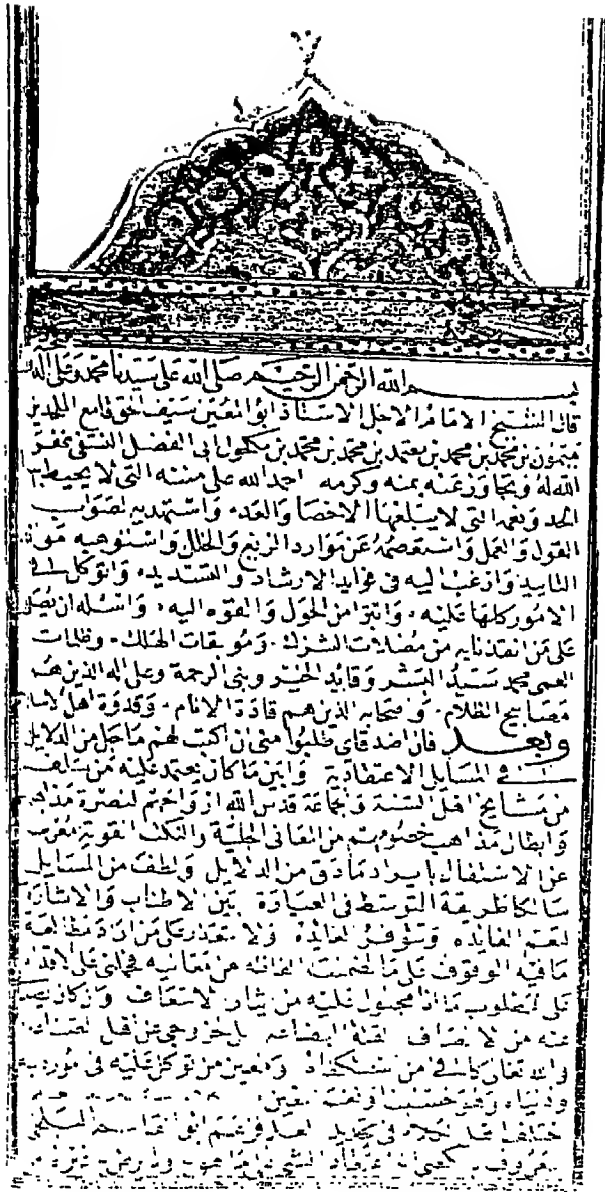 بسم الله الرحمن الرحيم صلى الله على سيدنا محمد وعلى اله
قال الشيخ الامام الاجل الاستاذ ابو المعين سيف الحق قامع الملحدين
ميمون بن محمد بن محمد بن معتمد بن محمد بن محمد بن مكحول ابى الفضل النسفى غفر
الله له وتجاوز عنه بمنه وكرمه احمد الله على مننه التى لا يحيط بها
الحد ونعمه التى لا يبلغها الاحصا والعدد واستهديه لصواب
القول والعمل واستعصمه عن موارد الزيغ والخلل واستوهبه مواد
التاييد وارغب اليه فى عوايد الارشاد والتسديد واتوكل فى
الامور كلها عليه وابترا من الحول والقوه اليه واسئله ان يصلى
على من انقذنا به من مضلات الشرك وموبقات الهلك وظلمات
العمى محمد سيد البشر وقايد الخير ونبى الرحمة وعلى اله الذين هم
مصابيح الظلام وصحابه الذين هم قادة الانام وقدوة اهل الاسلام
وبعد فان اصدقاى طلبوا منى ان اكتب لهم ما جل من الدلايل
فى المسايل الاعتقادية وابين ما كان يعتمد عليه من سلف
من مشايخ اهل السنة والجماعة قدس الله ارواحهم لنصرة مذاهبهم
وابطال مذاهب خصومهم من المعانى الجلية والنكت القوية معرضا
عن الاشتغال بايراد ما دق من الدلايل ولطف من المسايل
سالكا طريقة التوسط فى العبارة بين الاطناب والاشارة
لتعم الفايده وتتوفر العايدة ولا يتعذر على من اراد مطالعة
ما فيه الوقوف على ما تضمنت الفاظه من معانيه فحملنى على الاقدام
على المطلوب ما انا مجبول عليه من ايثار الاسعاف وان كان يصد
عنه من الانصاف لقلة البضاعة
والله تعالى كافى من استكفاه ومعين من توكل عليه فى امور دينه
ودنياه وهو حسبنا ونعم معين